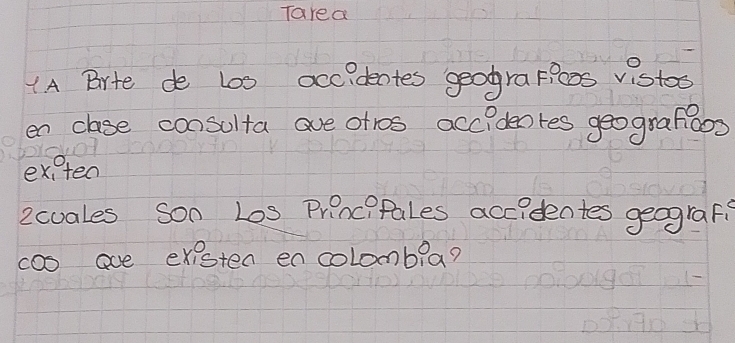 Tarea
1A Parte de Los accidentes geograficos vistos
en clase consulta que otros accidentes geograficos
exiten
2cuales son Los Principales accidentes geografi
cos que existen en colombia?